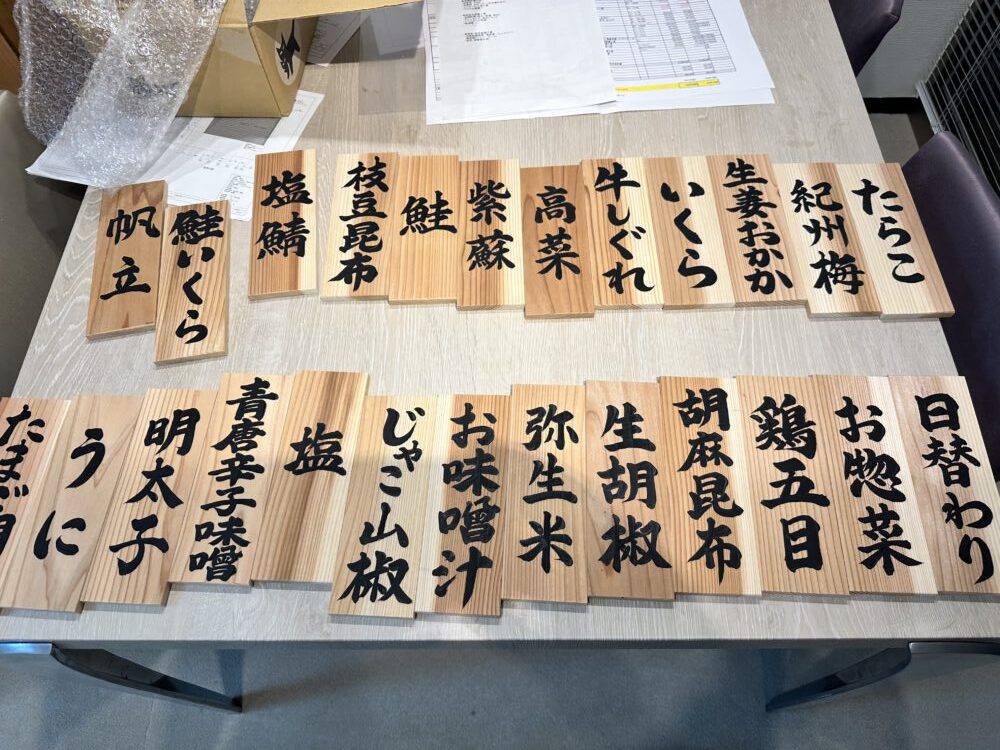 帆立
鮭いくら
塩鯖
枝豆昆布
鮭
紫蘇
高菜
牛しぐれ
いくら
生姜おかか
紀州梅
たらこ
うに
明太子
青唐辛子味噌
塩
じゃこ山椒
お味噌汁
弥生米
生胡椒
胡麻昆布
鶏五目
お惣菜
日替わり